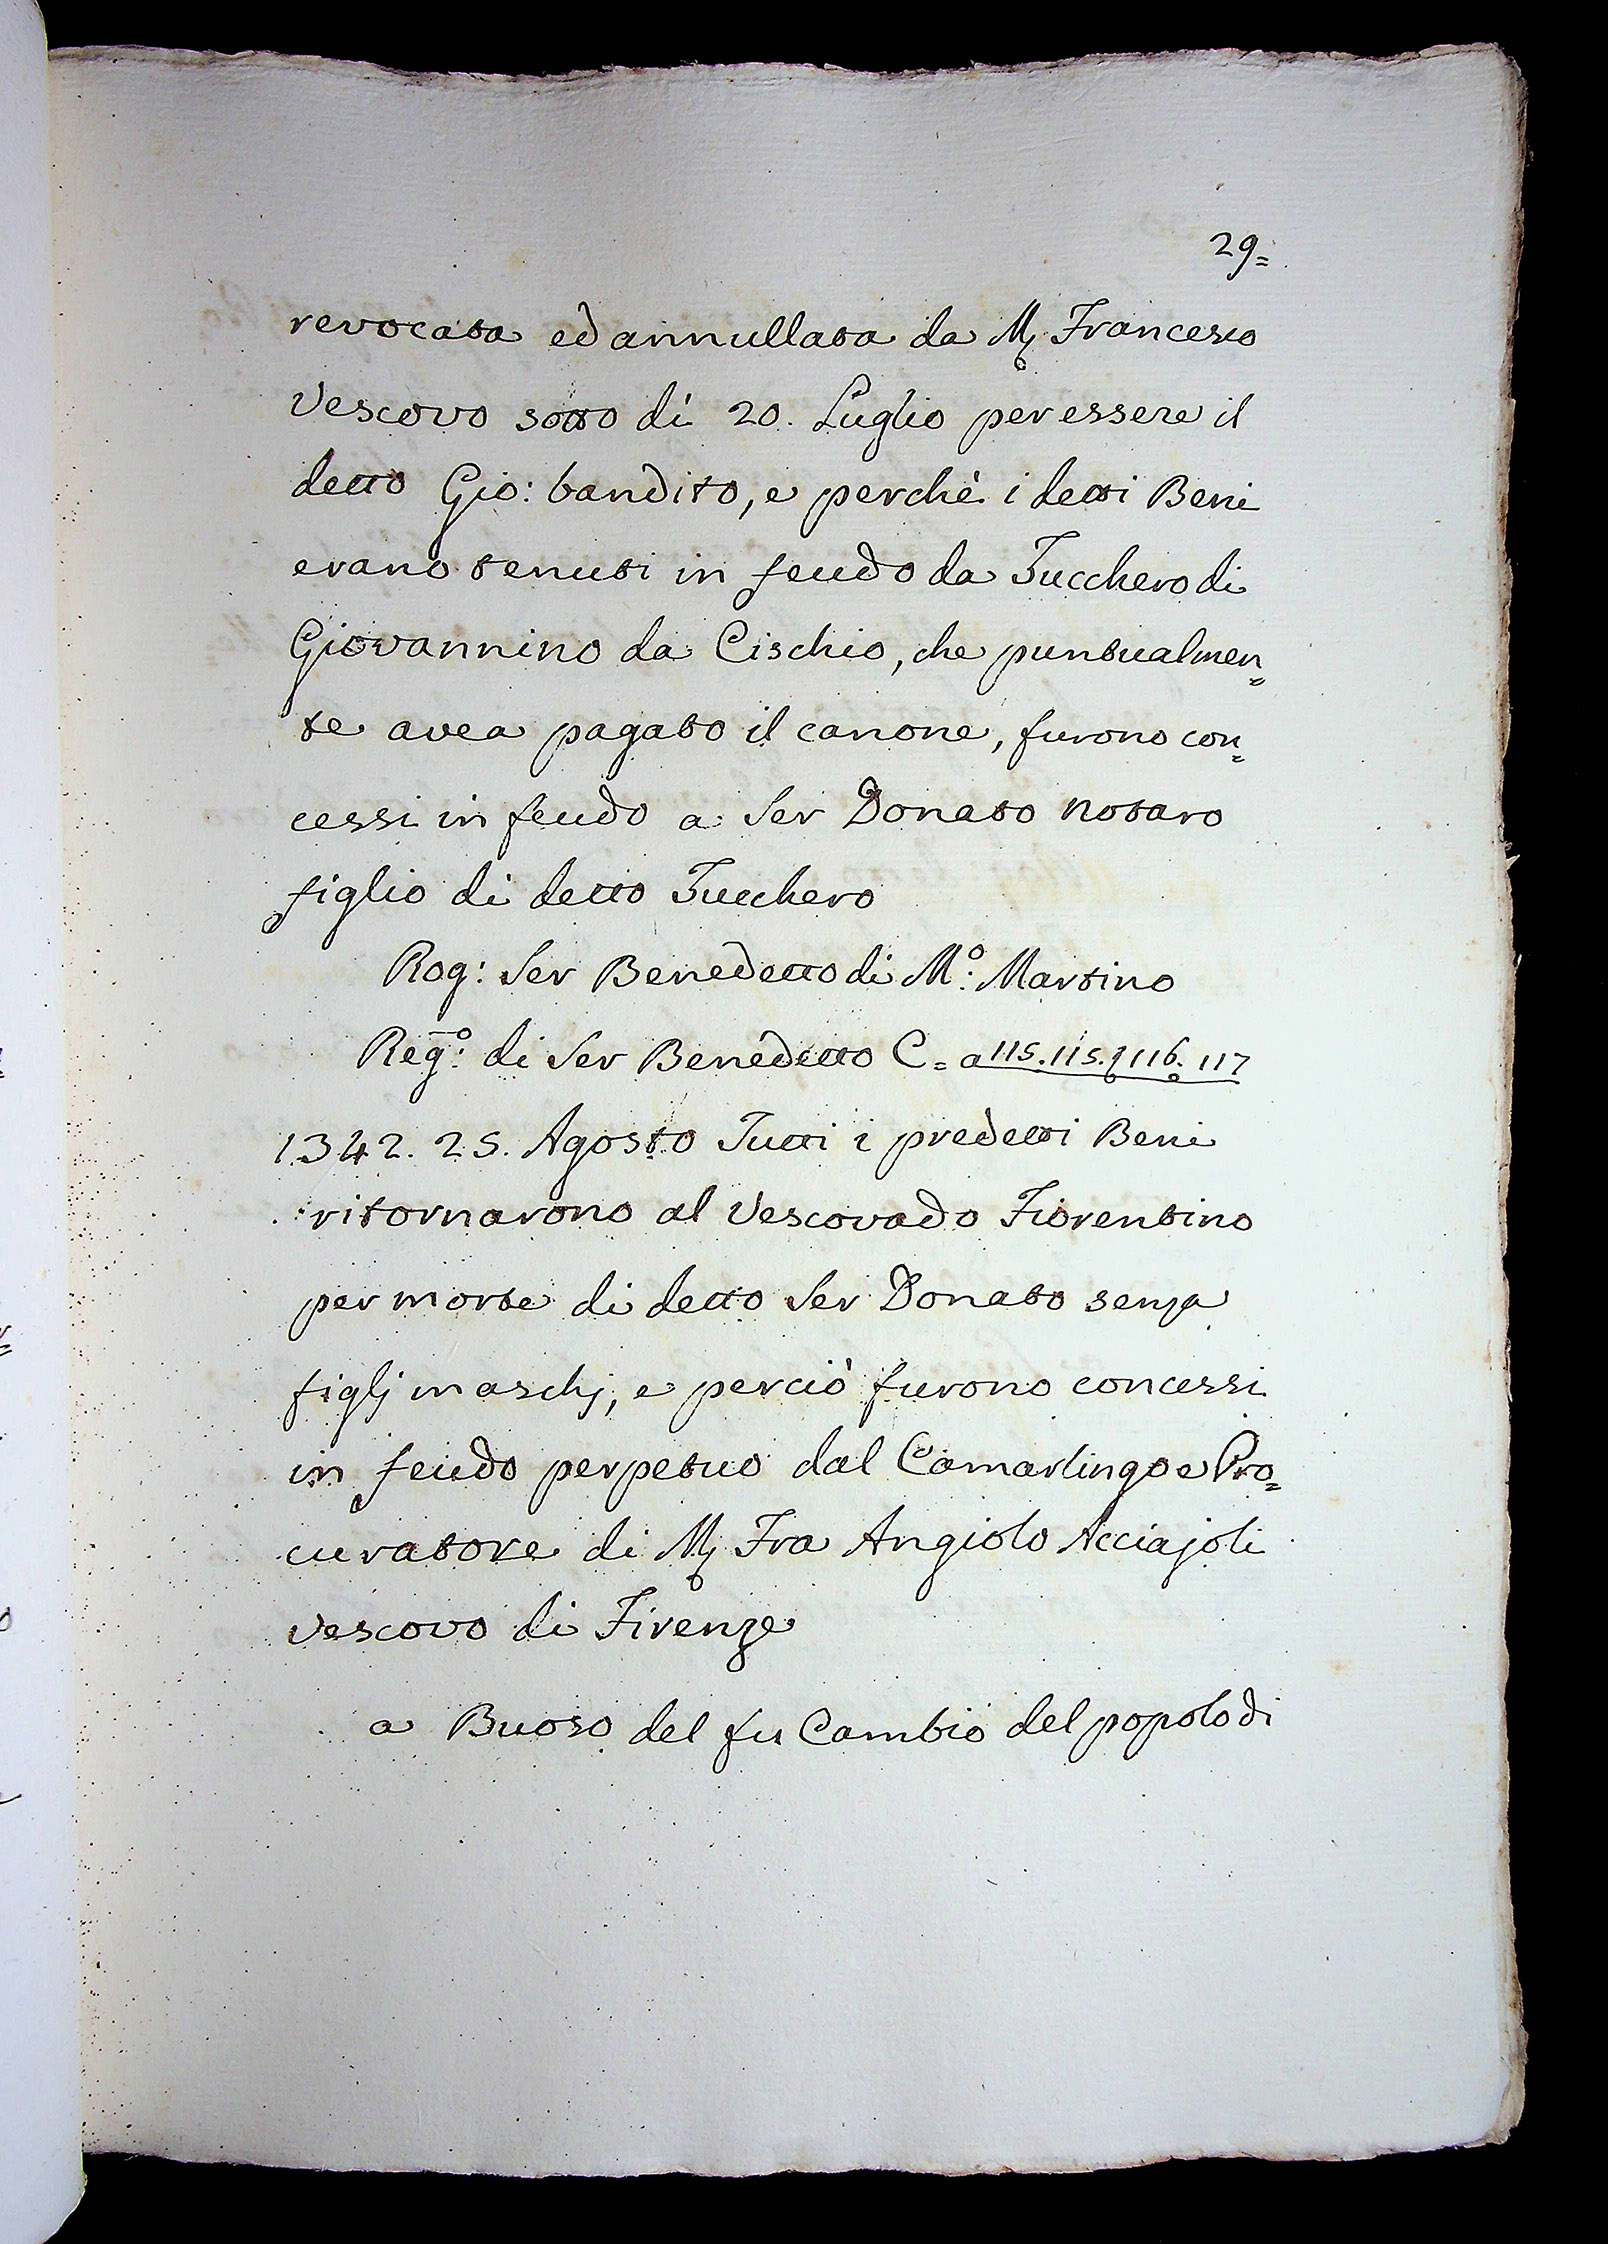 29=
revocata ed annullata da M. Francesco
Vescovo sotto dì 20. Luglio per essere il
detto Gio: bandito, e perchè i detti Beni
erano tenuti in feudo da Tucchero di
Giovannino da Cischio, che puntualmen=
te avea pagato il canone, furono con=
cessi in feudo a Ser Donato Notaro
figlio di detto Tucchero
Rog: Ser Benedetto di M.º Martino
Reg.º di Ser Benedetto C= a 115. 115. 116. 117
1342. 25. Agosto Tutti i predetti Beni
ritornarono al Vescovado Fiorentino
per morte di detto Ser Donato senza
figlj maschj, e perciò furono concessi
in feudo perpetuo dal Camarlingo e Pro=
curatore di M. Fra Angiolo Acciajoli
Vescovo di Firenze
a Buoso del fu Cambio del popolo di